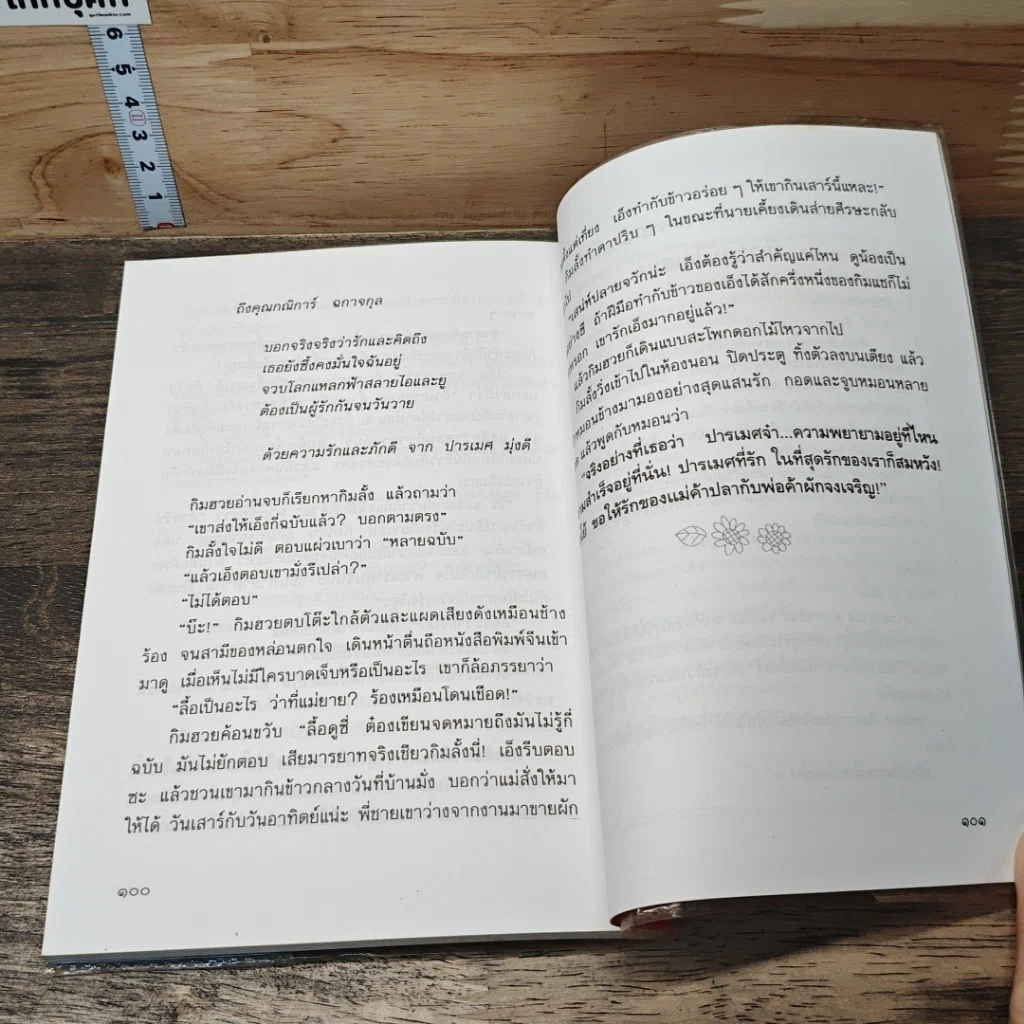 6
5
4
3
2
1
ถึงคุณกณิการ์ ฉกาจกุล
บอกจริงจริงว่ารักและคิดถึง
เธอยังซึ้งคงมั่นใจฉันอยู่
จวบโลกแหลกฟ้าสลายไอและยู
ต้องเป็นผู้รักกันจนวันวาย
ด้วยความรักและภักดี จาก ปารเมศ มุ่งดี
กิมฮวยอ่านจบก็เรียกหากิมลั้ง แล้วถามว่า
“เขาส่งให้เอ็งกี่ฉบับแล้ว? บอกตามตรง”
กิมลั้งใจไม่ดี ตอบแผ่วเบาว่า “หลายฉบับ”
“แล้วเอ็งตอบเขามั่งรึเปล่า?”
“ไม่ได้ตอบ”
“บ๊ะ!” กิมฮวยตบโต๊ะใกล้ตัวและแผดเสียงดังเหมือนช้าง
ร้อง จนสามีของหล่อนตกใจ เดินหน้าตื่นถือหนังสือพิมพ์จีนเข้า
มาดู เมื่อเห็นไม่มีใครบาดเจ็บหรือเป็นอะไร เขาก็ล้อภรรยาว่า
“ลื้อเป็นอะไร ว่าที่แม่ยาย? ร้องเหมือนโดนเชือด!”
กิมฮวยค้อนขวับ “ลื้อดูซี่ ต๋องเขียนจดหมายถึงมันไม่รู้กี่
ฉบับ มันไม่ยักตอบ เสียมารยาทจริงเชียวกิมลั้งนี่! เอ็งรีบตอบ
ซะ แล้วชวนเขามากินข้าวกลางวันที่บ้านมั่ง บอกว่าแม่สั่งให้มา
ให้ได้ วันเสาร์กับวันอาทิตย์แน่ะ พี่ชายเขาว่างจากงานมาขายผัก
๑๐๐
ตั้งแต่เที่ยง เอ็งทำกับข้าวอร่อย ๆ ให้เขากินเสาร์นี้แหละ!”
กิมลั้งทำตาปริบ ๆ ในขณะที่นายเคี้ยงเดินส่ายศีรษะกลับ
ไป
“เสน่ห์ปลายจวักน่ะ เอ็งต้องรู้ว่าสำคัญแค่ไหน ดูน้องเป็น
ถ้าฝีมือทำกับข้าวของเอ็งได้สักครึ่งหนึ่งของกิมแชก็ไม่
เขารักเอ็งมากอยู่แล้ว!”
แล้วกิมฮวยก็เดินแบบสะโพกดอกไม้ไหวจากไป
กิมลั้งวิ่งเข้าไปในห้องนอน ปิดประตู ทิ้งตัวลงบนเตียง แล้ว
หมอนข้างมามองอย่างสุดแสนรัก กอดและจูบหมอนหลาย
แล้วพูดกับหมอนว่า
“จริงอย่างที่เธอว่า ปารเมศจ๋า...ความพยายามอยู่ที่ไหน
สำเร็จอยู่ที่นั่น! ปารเมศที่รัก ในที่สุดรักของเราก็สมหวัง!
ขอให้รักของแม่ค้าปลากับพ่อค้าผักจงเจริญ!”
๑๐๑